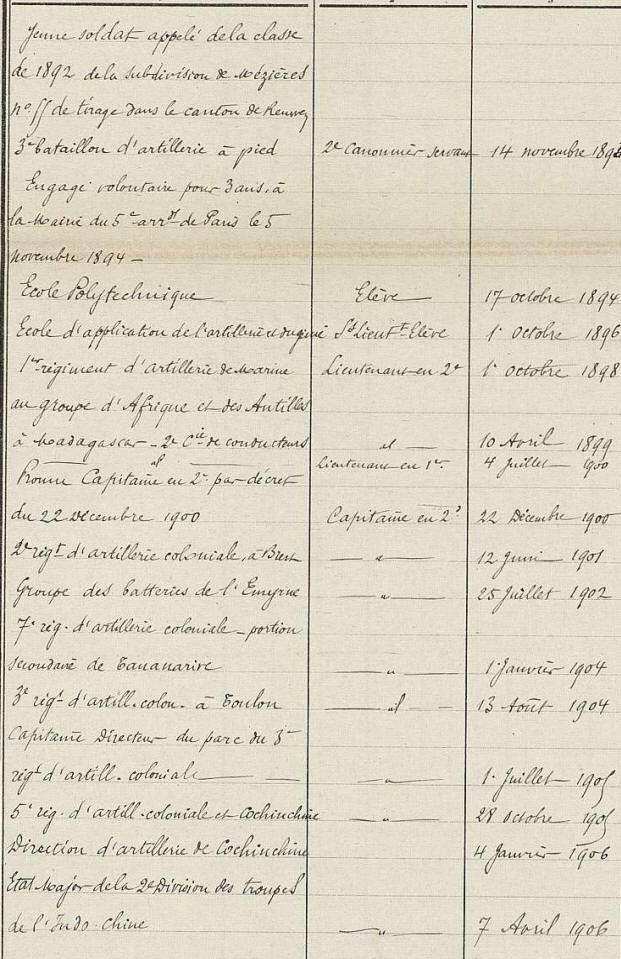 Jeune soldat appelé de la classe
de 1892 de la subdivision de Mézières
n° 55 de tirage dans le canton de Renwez
3e bataillon d'artillerie à pied 2e Canonnier servant 14 novembre
Engagé volontaire pour 3 ans, à
la Mairie du 5e arrdt de Paris le 5
novembre 1894 —
Ecole Polytechnique Elève 17 octobre 1894
Ecole d'application de l'artillerie et du génie St Lieutt Elève 1er octobre 1896
1er régiment d'artillerie de Marine Lieutenant en 2e 1er octobre 1898
au groupe d'Afrique et des Antilles
à Madagascar — 2e Cie de conducteurs — d — 10 Avril 1899
— d — Lieutenant en 1er 4 Juillet 1900
Promu Capitaine en 2e par décret
du 22 Décembre 1900 Capitaine en 2e 22 Décembre 1900
2e régt d'artillerie coloniale, à Brest — " — 12 Juin 1901
Groupe des batteries de l'Emyrne — " — 25 Juillet 1902
7e rég. d'artillerie coloniale — portion
secondaire de Tananarive — " — 1er Janvier 1904
3e régt d'artill. colon. à Toulon — d — 13 Août 1904
Capitaine Directeur du parc du 3e
régt d'artill. coloniale — " — 1er Juillet 1905
5e rég. d'artill. coloniale et Cochinchine — " — 28 octobre 1905
Direction d'artillerie de Cochinchine 4 Janvier 1906
Etat Major de la 2e Division des troupes
de l'Indo-Chine — " — 7 Avril 1906